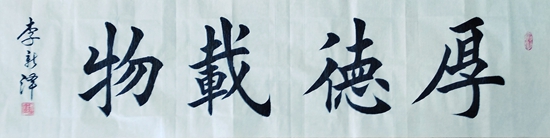 厚德載物
李新泽